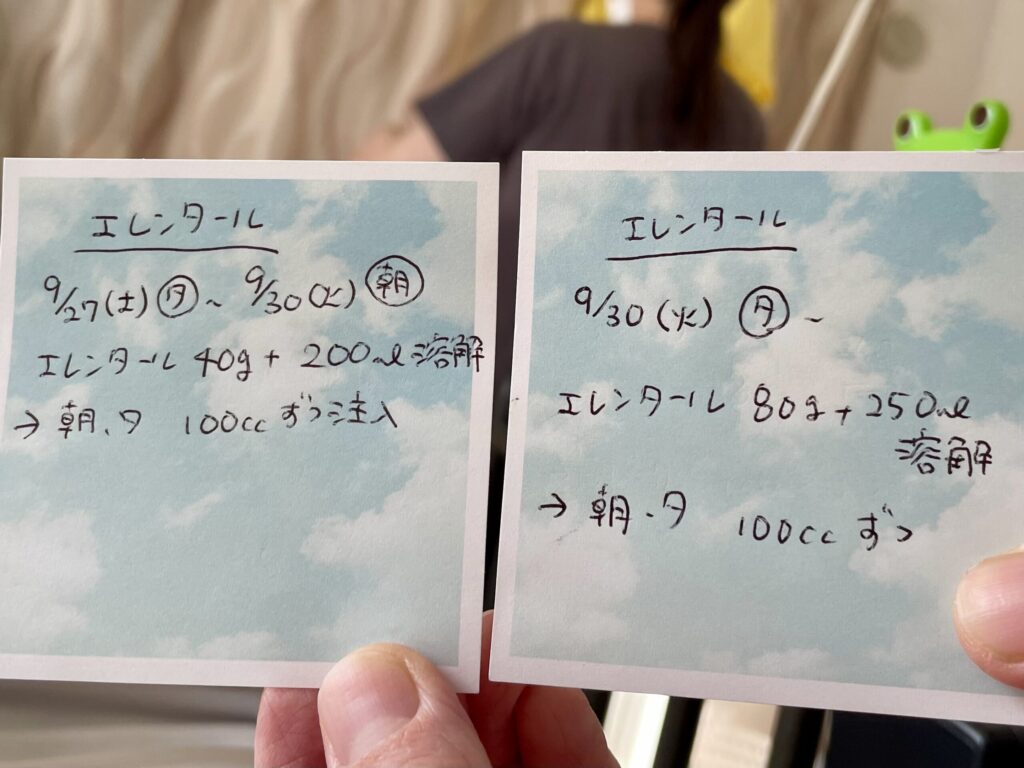 エレンタール
9/27(土)夕~ 9/30(火)朝
エレンタール 40g + 200ml溶解
→ 朝、夕 100ccずつ注入
エレンタール
9/30(火) 夕~
エレンタール 80g + 250ml
溶解
→ 朝、夕 100ccずつ